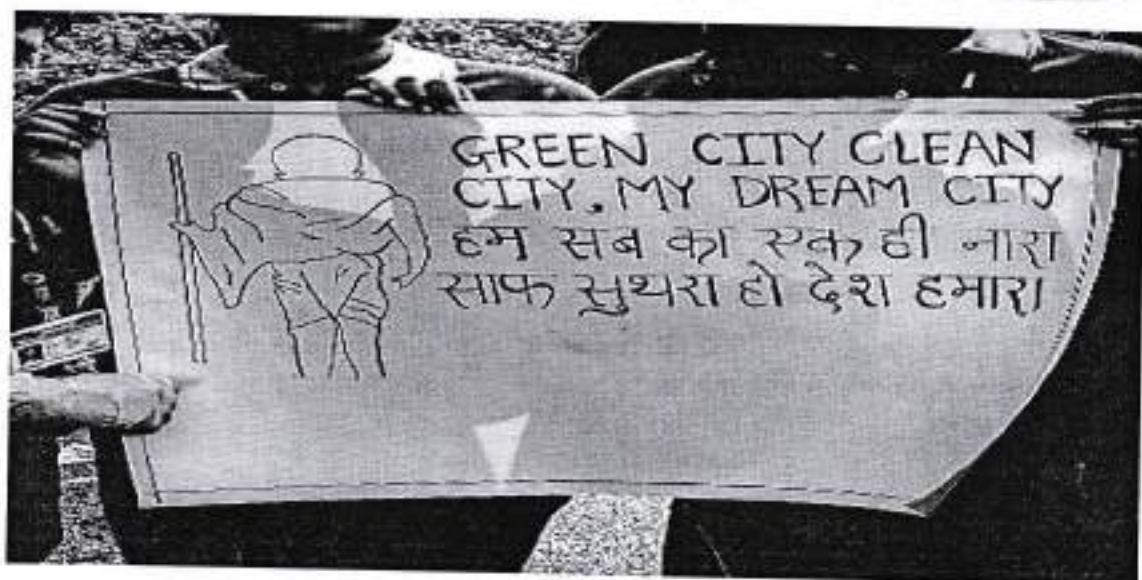 GREEN CITY CLEAN
CITY, MY DREAM CITY
हम सब का एक ही नारा
साफ सुथरा हो देश हमारा